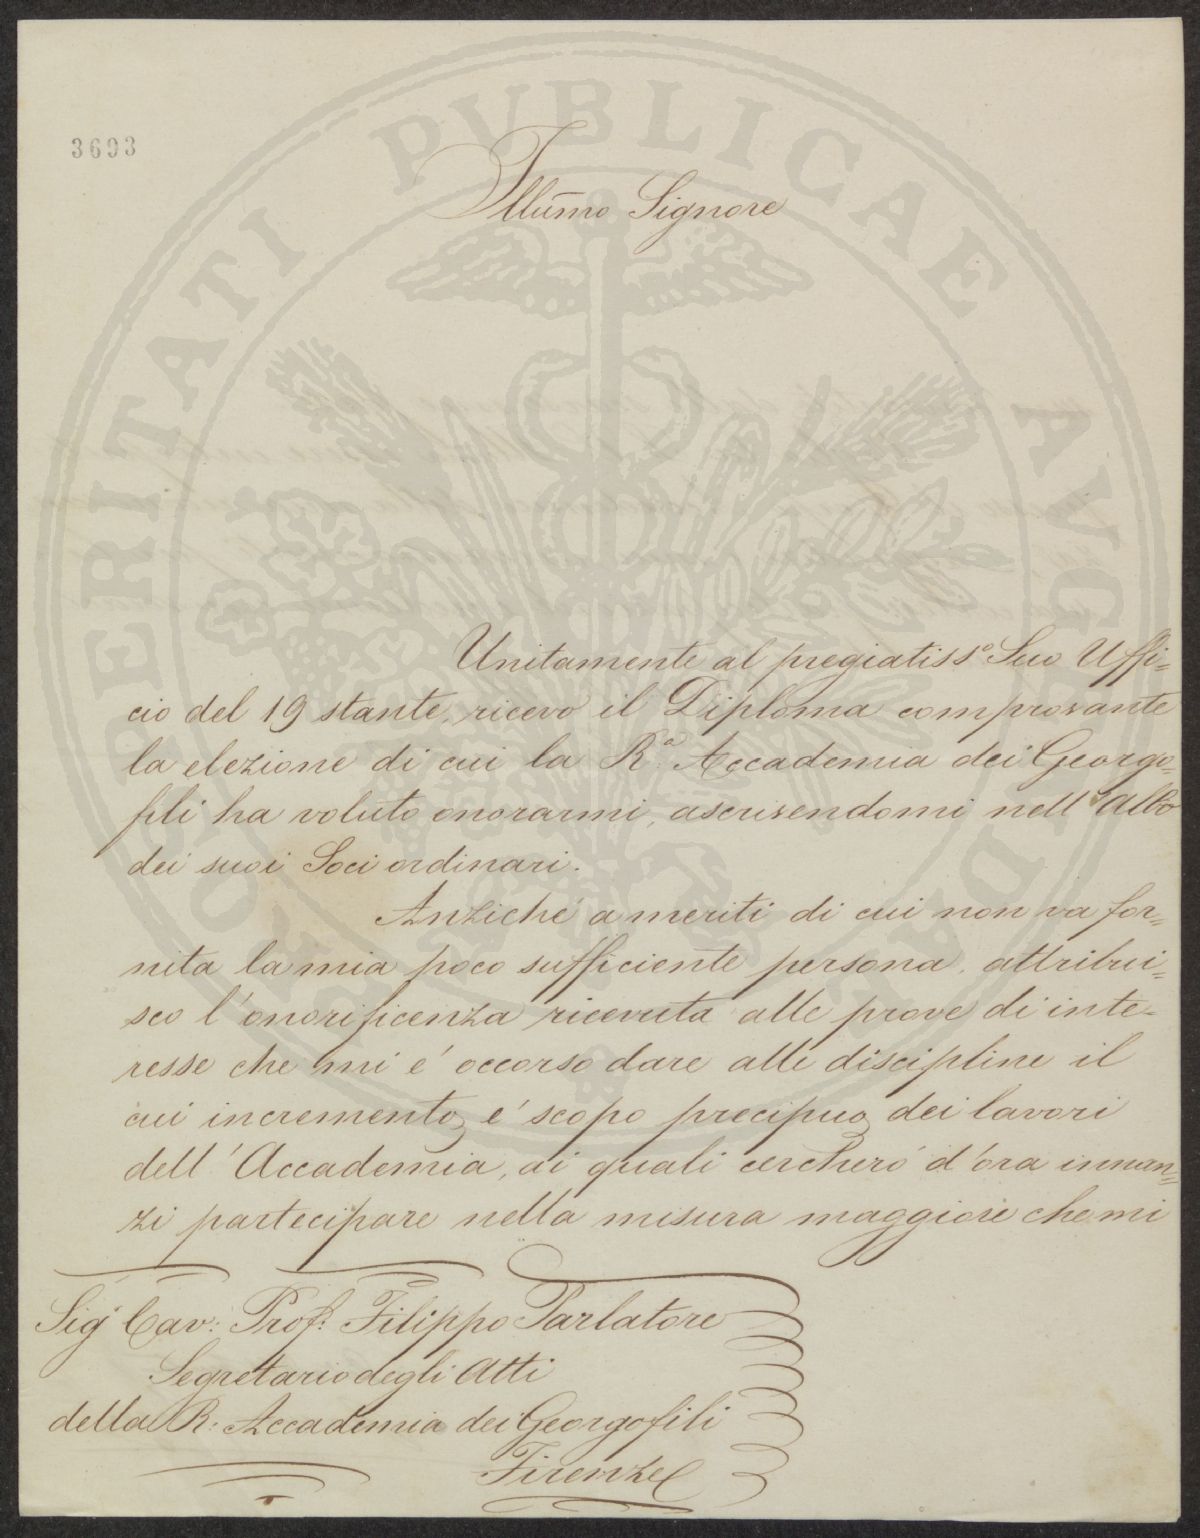 3693
Illumo Signore
Unitamente al pregiatisso Suo Uffi=
cio del 19 stante, ricevo il Diploma comprovante
la elezione di cui la R.a Accademia dei Georgo=
fili ha voluto onorarmi, ascrivendomi nell'Albo
dei suoi Soci ordinari.
Anziché a meriti di cui non va for=
nita la mia poco sufficiente persona, attribui=
sco l'onorificenza ricevuta alle prove di inte=
resse che mi é occorso dare alle discipline il
cui incremento é scopo precipuo dei lavori
dell'Accademia, ai quali cercheró d'ora innan=
zi partecipare nella misura maggiore che mi
Sigr Cav: Prof: Filippo Parlatore
Segretario degli Atti
della R: Accademia dei Georgofili
Firenze
PROSPERITATI PUBLICAE AVGENDAE